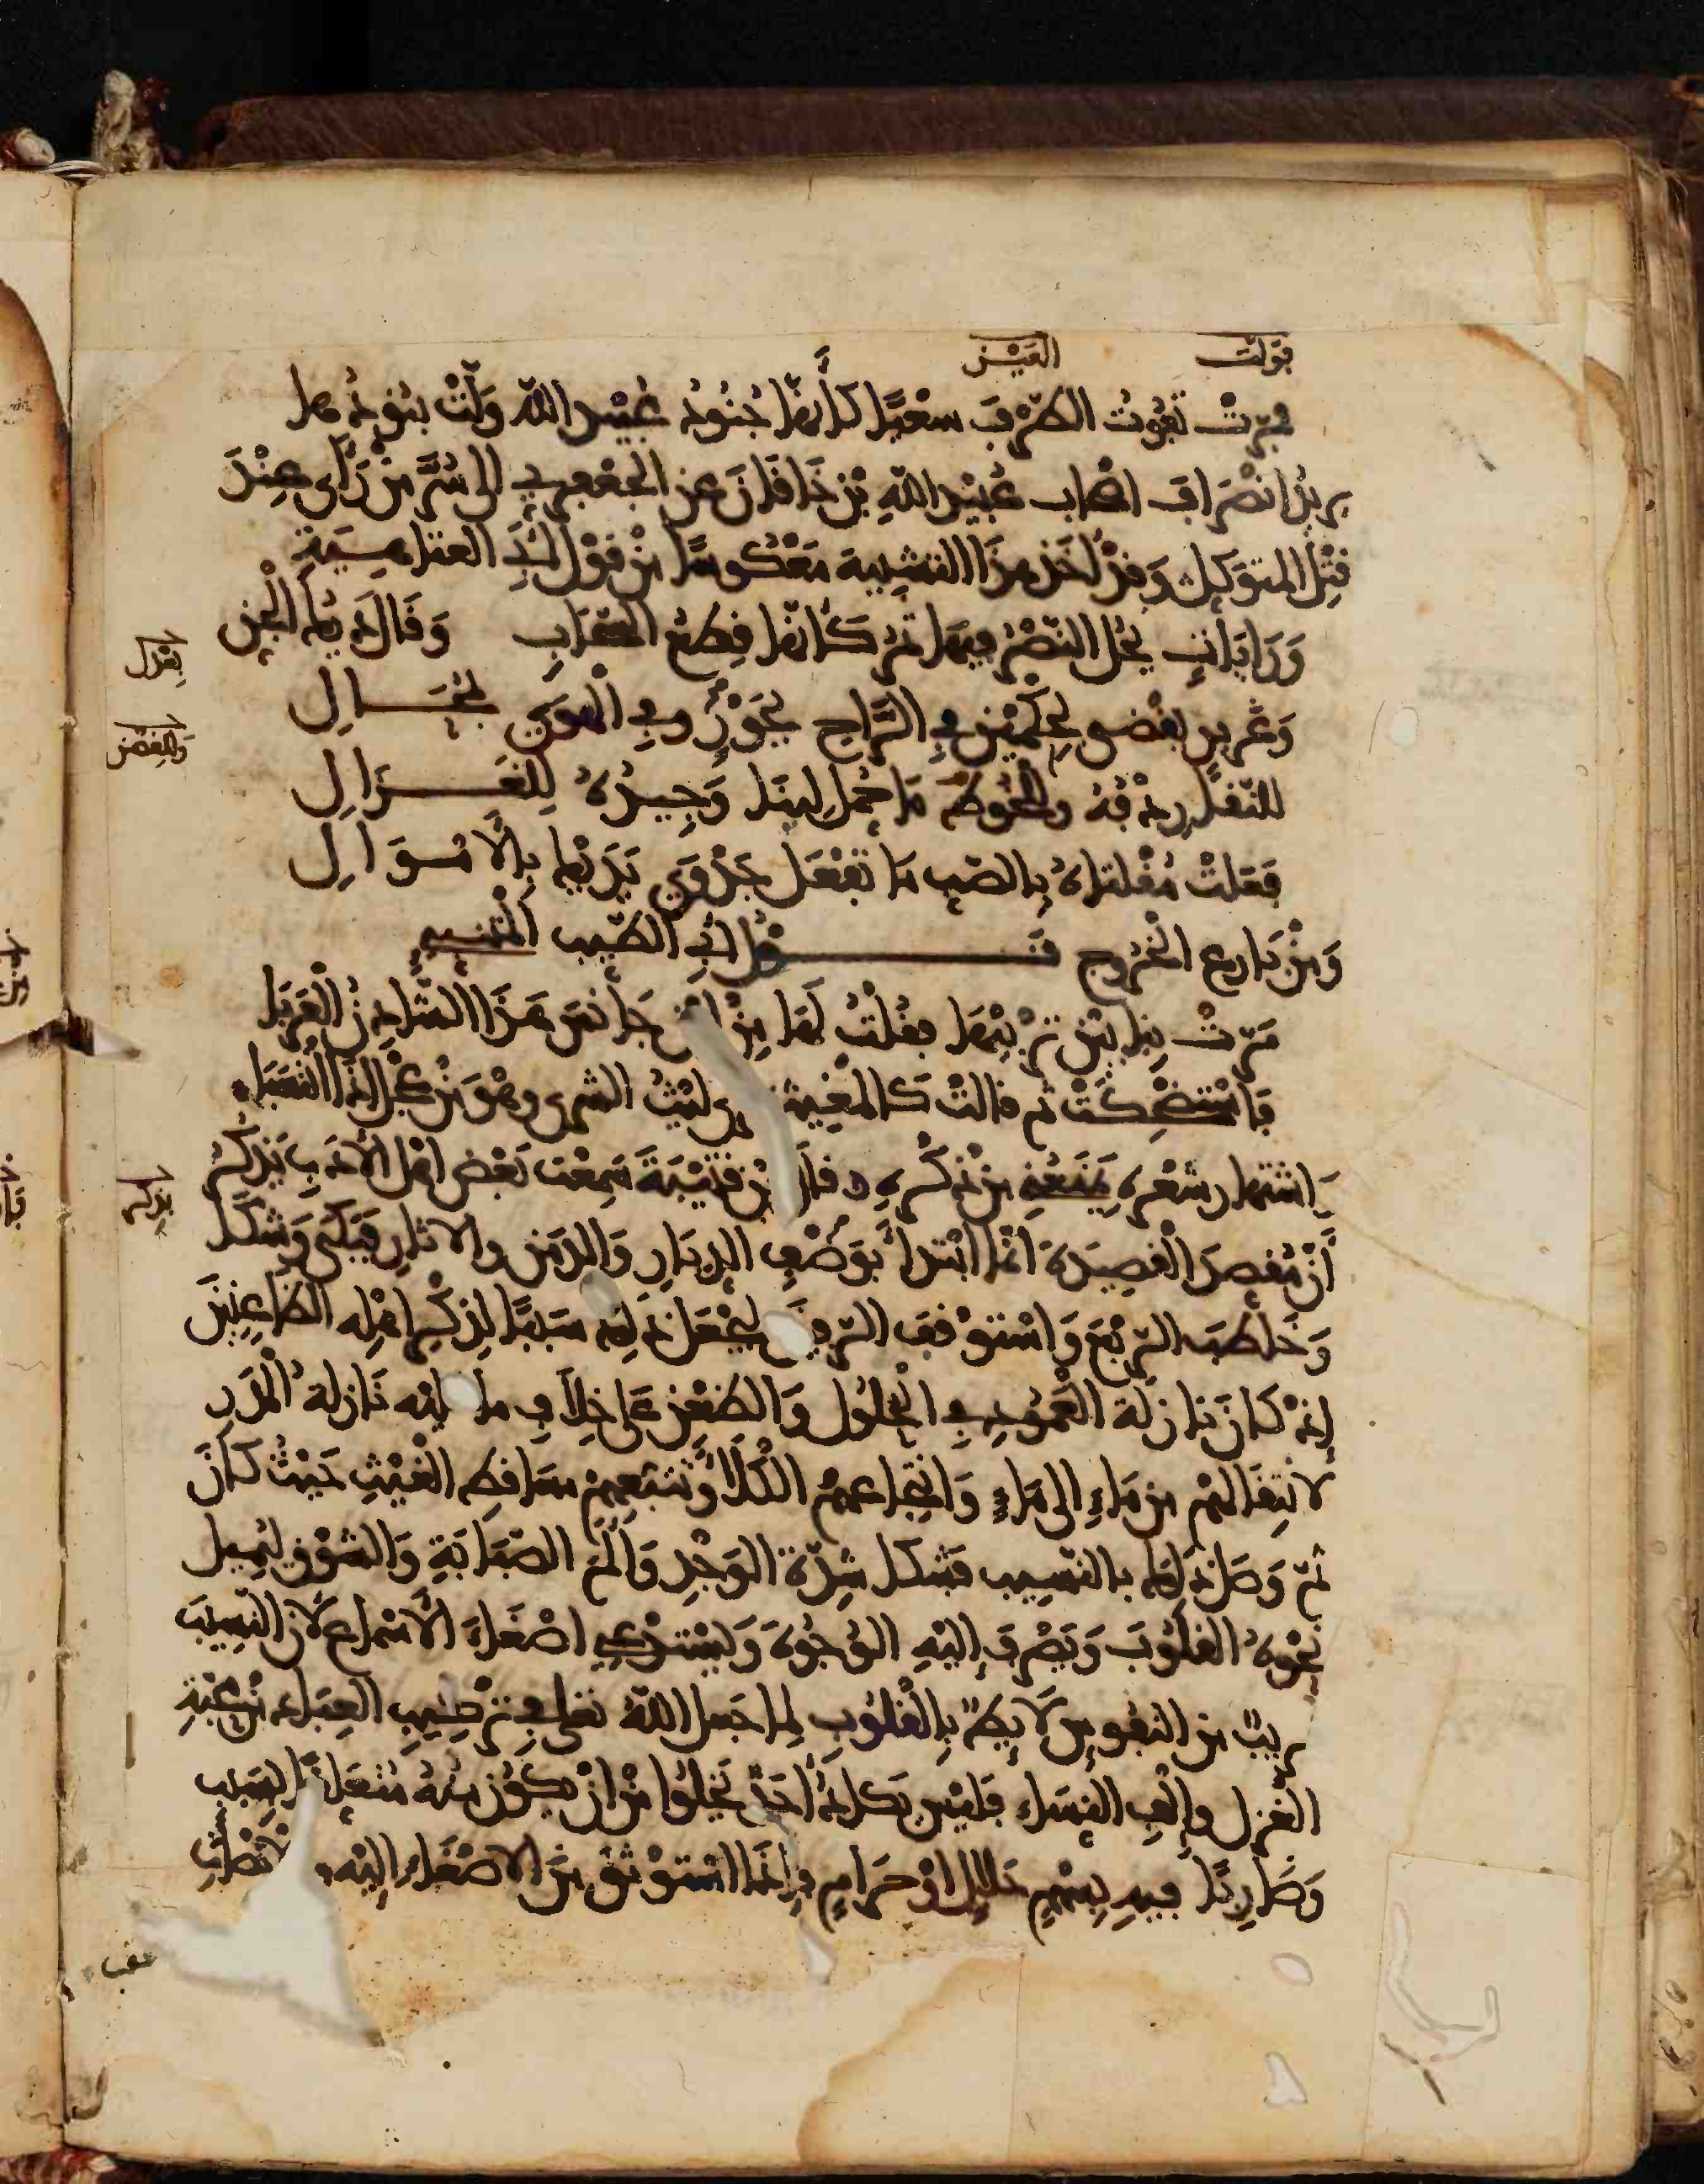 فولت العين
فمرت تفوت الطرف سعيا كأنها جنود عبيد الله ولت بنودها
يريد انصراف اصحاب عبيد الله بن خاقان عن الجعفري الى سر من رأى عند
قتل المتوكل وقد اخذ هذا التشبيه معكوسا من قول ابي العتاهية
ورايات يحل النصر فيها تمر كأنها قطع السحاب وقال ديك الجن
بعدل
وغرير يقضي بحكمين في الراح بجور وفي الهوى بمحال
وللغصن
للنقا ردفه وللخوط ما حمل لينا وجيده للغزال
فعلت مقلتاه بالصب ما تفعل جدوى يديك بالاموال
ومن بارع الخروج قول ابي الطيب المتنبي
مرت بنا بين تربيها فقلت لها من اين جانس هذا الشادن العربا
فاستضحكت ثم قالت كالمغيث يرى ليث الشرى وهو من عجل اذا انتسبا
اشتهار شعره يمنعني من ذكره وقال ابن قتيبة سمعت بعض اهل الادب يذكر
يذكر
أن مقصد القصيدة انما ابتدأ بوصف الديار والدمن والاثار فبكى وشكا
وخاطب الربع واستوقف الرفيق ليجعل ذلك سببا لذكر اهله الظاعنين
إذ كان نازلة العمود في الحلول والظعن على خلاف ما عليه نازلة المدر
لانتقالهم من ماء الى ماء وانتجاعهم الكلأ وتتبعهم مساقط الغيث حيث كان
ثم وصل ذلك بالنسيب فشكا شدة الوجد وألم الصبابة والشوق ليميل
نحوه القلوب ويصرف إليه الوجوه ويستدعي اصغاء الأسماع لأن النسيب
قريب من النفوس لايط بالقلوب لما جعل الله تعلى في تركيب العباد من محبة
الغزل وإلف النساء فليس يكاد أحد يخلوا من ان يكون منه متعلقا بسبب
وضاربا فيه بسهم حلال او حرام فإذا استوثق من الاصغاء إليه
عقب